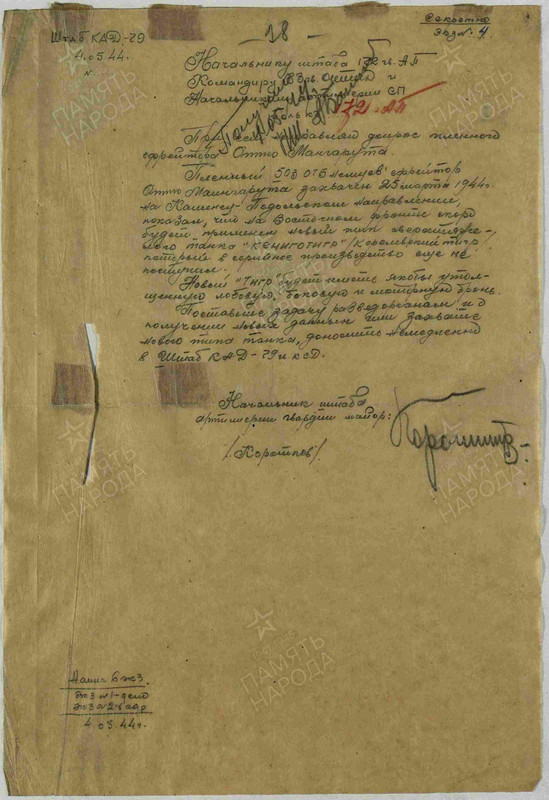 Секретно
экз. № 4
Штаб КАД-29
4.05.44.
№
18
Начальнику штаба 172 гв. АП
Командиру
Начальникам артиллерии СП
только
172 АП
При сем направляю допрос пленного
ефрейтора Отто Мангарута.
Пленный 503 отб немцев ефрейтор
Отто Мангарута захвачен 25 марта 1944г.
на Каменец-Подольском направлении,
показал, что на Восточном фронте скоро
будет применен новый тип сверхтяже-
лого танка "КЕНИГСТИГР" /Королевский тигр/
который в серийное производство еще не
поступил.
Новый "Тигр" будет иметь якобы утол-
щенную лобовую, боковую и моторную броню.
Поставьте задачу разведорганам и о
получении новых данных или захвате
нового типа танка, доносить немедленно
в Штаб КАД-29 и КСД.
Начальник штаба
артиллерии гвардии майор:
/Коротков/
Напич. 6 экз.
Экз №1-дело
Экз №2-6 адр
4.05.44г.
ПАМЯТЬ
НАРОДА